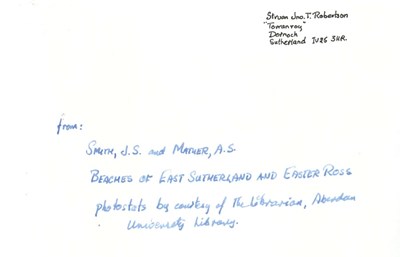 Struan Jno. T. Robertson
"Tomanroy"
Dornoch
Sutherland IV25 3HR.
from:
SMITH, J.S. and MATHER, A.S.
BEACHES OF EAST SUTHERLAND AND EASTER ROSS
photostats by courtesy of the Librarian, Aberdeen
University Library.